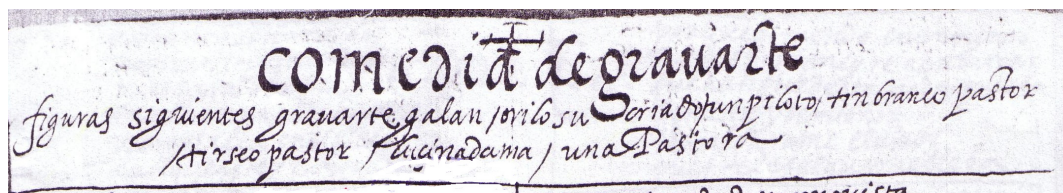 comedia de gravarte
figuras siguientes gravarte galan / orilo su criado / un piloto / tinbraneo pastor
/ tirseo pastor / lucina dama / una Pastora